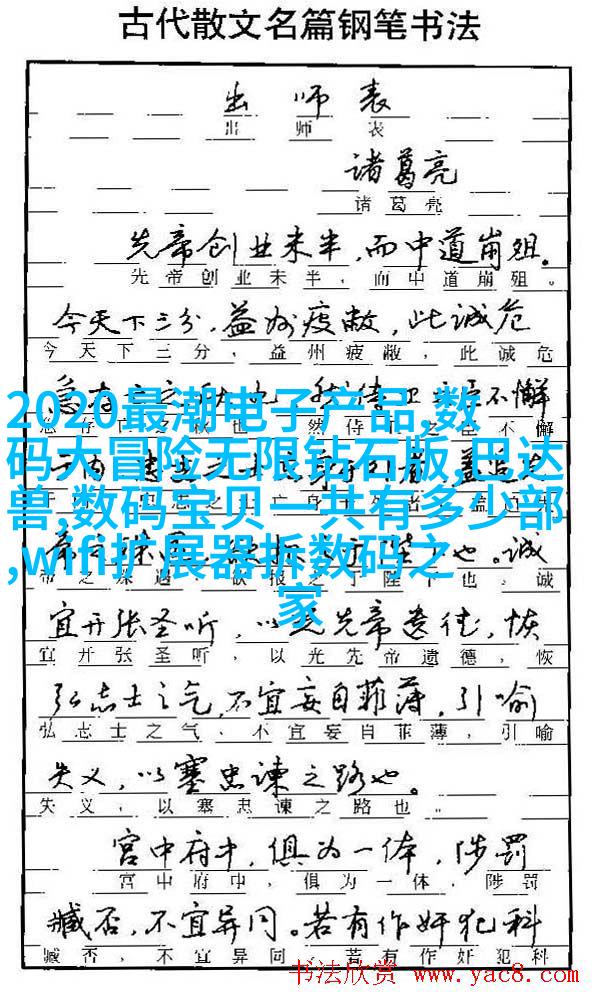 古代散文名篇钢笔书法
出 师 表
出 师 表
诸葛亮
诸 葛 亮
先帝创业未半,而中道崩殂。
先帝创业未半,而中道崩殂。
今天下三分,益州疲敝,此诚危
今天下三分,益州疲敝,此诚危
不懈
不懈
2020最潮电子产品,数
码大冒险无限钻石版,巴达
兽,数码宝贝一共有多少部
,wifi扩展器拆数码之
家
也。诚
也,诚
宜开张圣听,以光先帝遗德,恢
宜开张圣听,以光先帝遗德,恢
弘志士之气,不宜妄自菲薄,引喻
弘志士之气,不宜妄自菲薄,引喻
失义,以塞忠谏之路也。
失义,以塞忠谏之路也。
宫中府中,俱为一体,陟罚
宫中府中,俱为一体,陟罚
臧否,不宜异同。若有作奸犯科
臧否,不宜异同。若有作奸犯科
书法欣赏 www.yac8.com